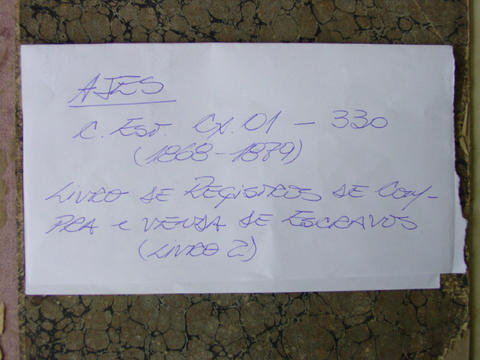 AJES
C. Est. Cx. 01 - 330
(1868-1879)
LIVRO DE REGISTROS DE COM-
PRA E VENDA DE ESCRAVOS
(LIVRO 2)